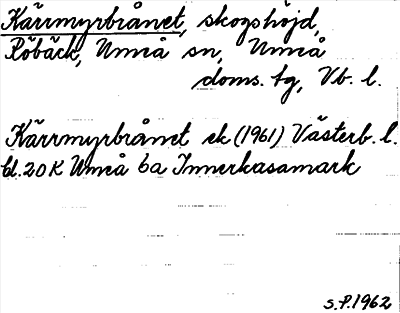 Kärrmyrbrånet, skogshöjd,
Röbäck, Umeå sn, Umeå
doms. tg, Vb. l.
Kärrmyrbrånet ek (1961) Västerb. l.
bl. 20 K Umeå 6a Innerkasamark
S.P. 1962